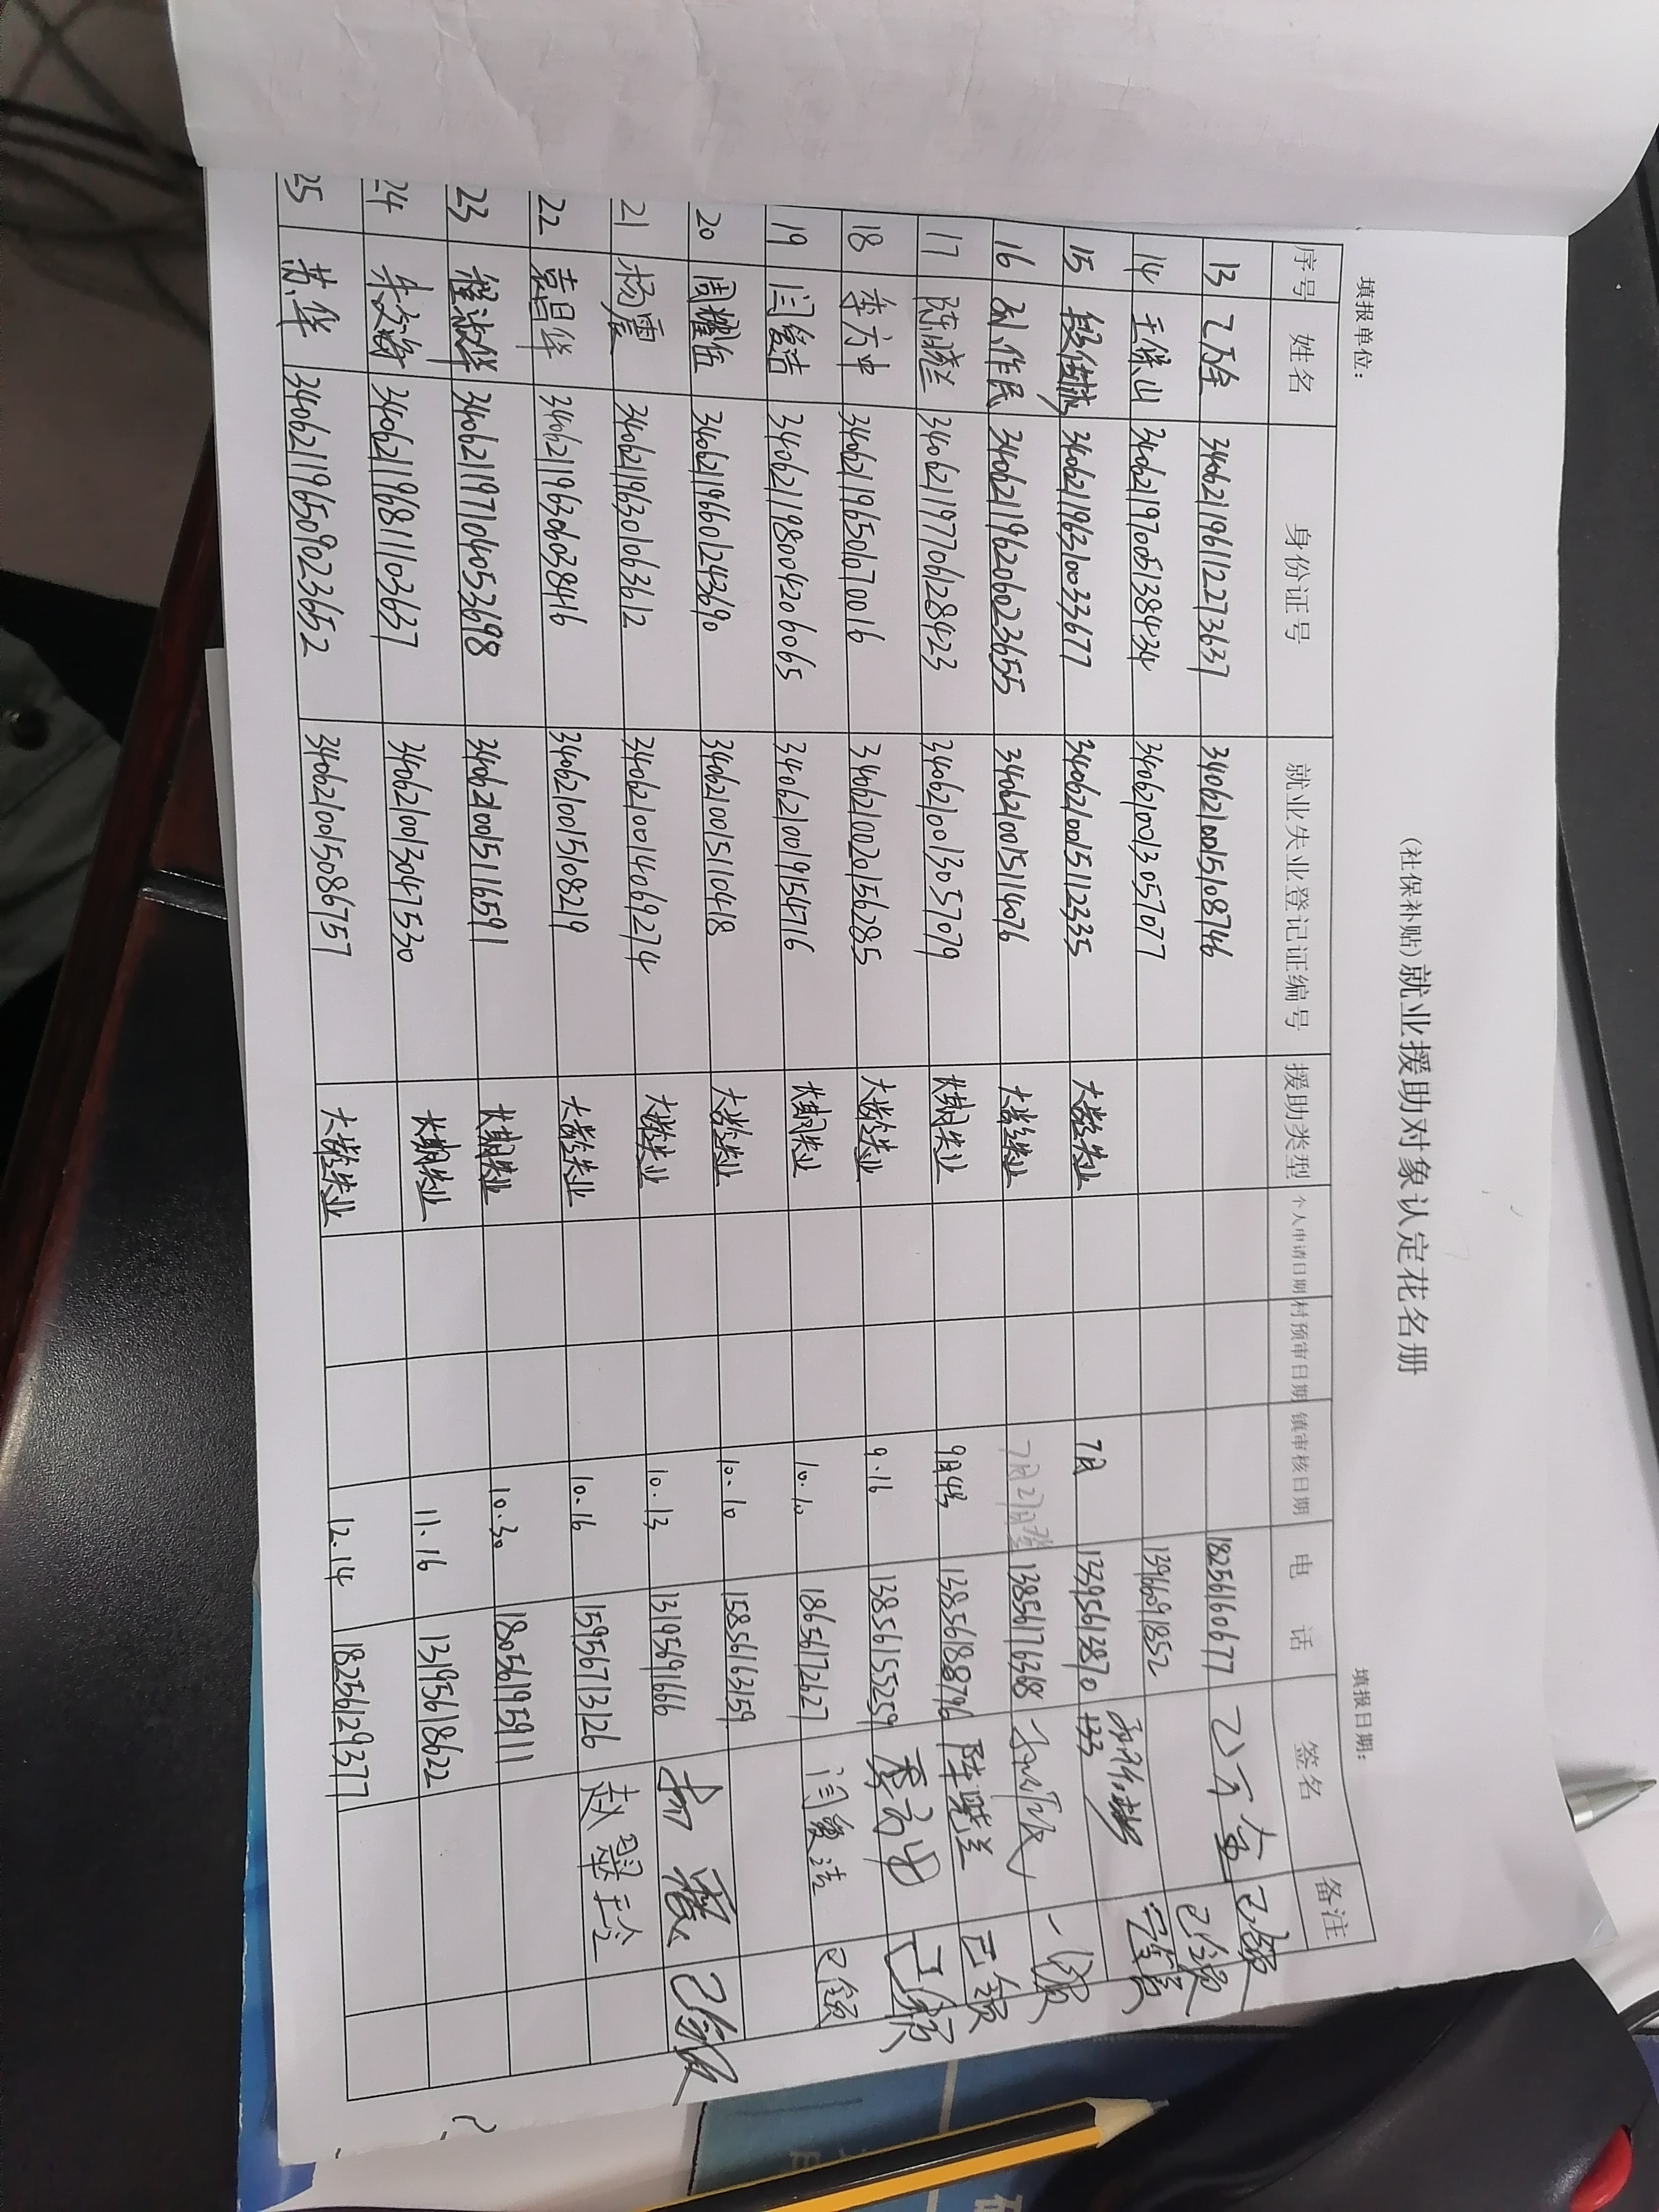 (社保补贴)就业援助对象认定花名册
填报单位: 填报日期:
序号 姓名 身份证号 就业失业登记证编号 援助类型 个人申请日期 村预审日期 镇审核日期 电 话 签名 备注
13 340621196112273637 3406210015108746 18256160677 已领
14 王保山 340621197005138434 3406210013057077 13966091852 已领
15 段伟 340621196310033677 3406210015112335 大龄失业 7月 13395613870 133
16 刘作民 340621196206023655 3406210015114076 大龄失业 7月21日 13856176368
17 陈晓兰 340621197706128423 3406210013057079 长期失业 9月4号 13856188796 陈晓兰 已领
18 李方中 340621196501070016 3406210020156285 大龄失业 9.16 13856155259 李方中 已领
19 闫爱洁 340621198004206065 3406210019154716 长期失业 10.10 18656172627 闫爱洁 已领
20 周耀伍 340621196601243690 3406210015110418 大龄失业 10.10 15856163159
21 杨震 340621196301063612 3406210014069274 大龄失业 10.13 13195691666 杨震 已领
22 袁昌华 340621196306038416 3406210015108219 大龄失业 10.16 15956713126 赵翠玲
23 程淑华 340621197104053698 34062100151116591 长期失业 10.30 18056195911
24 朱文海 340621196811103637 3406210013047530 长期失业 11.16 13195618622
25 苏华 340621196509023652 3406210015086757 大龄失业 12.14 18256129377